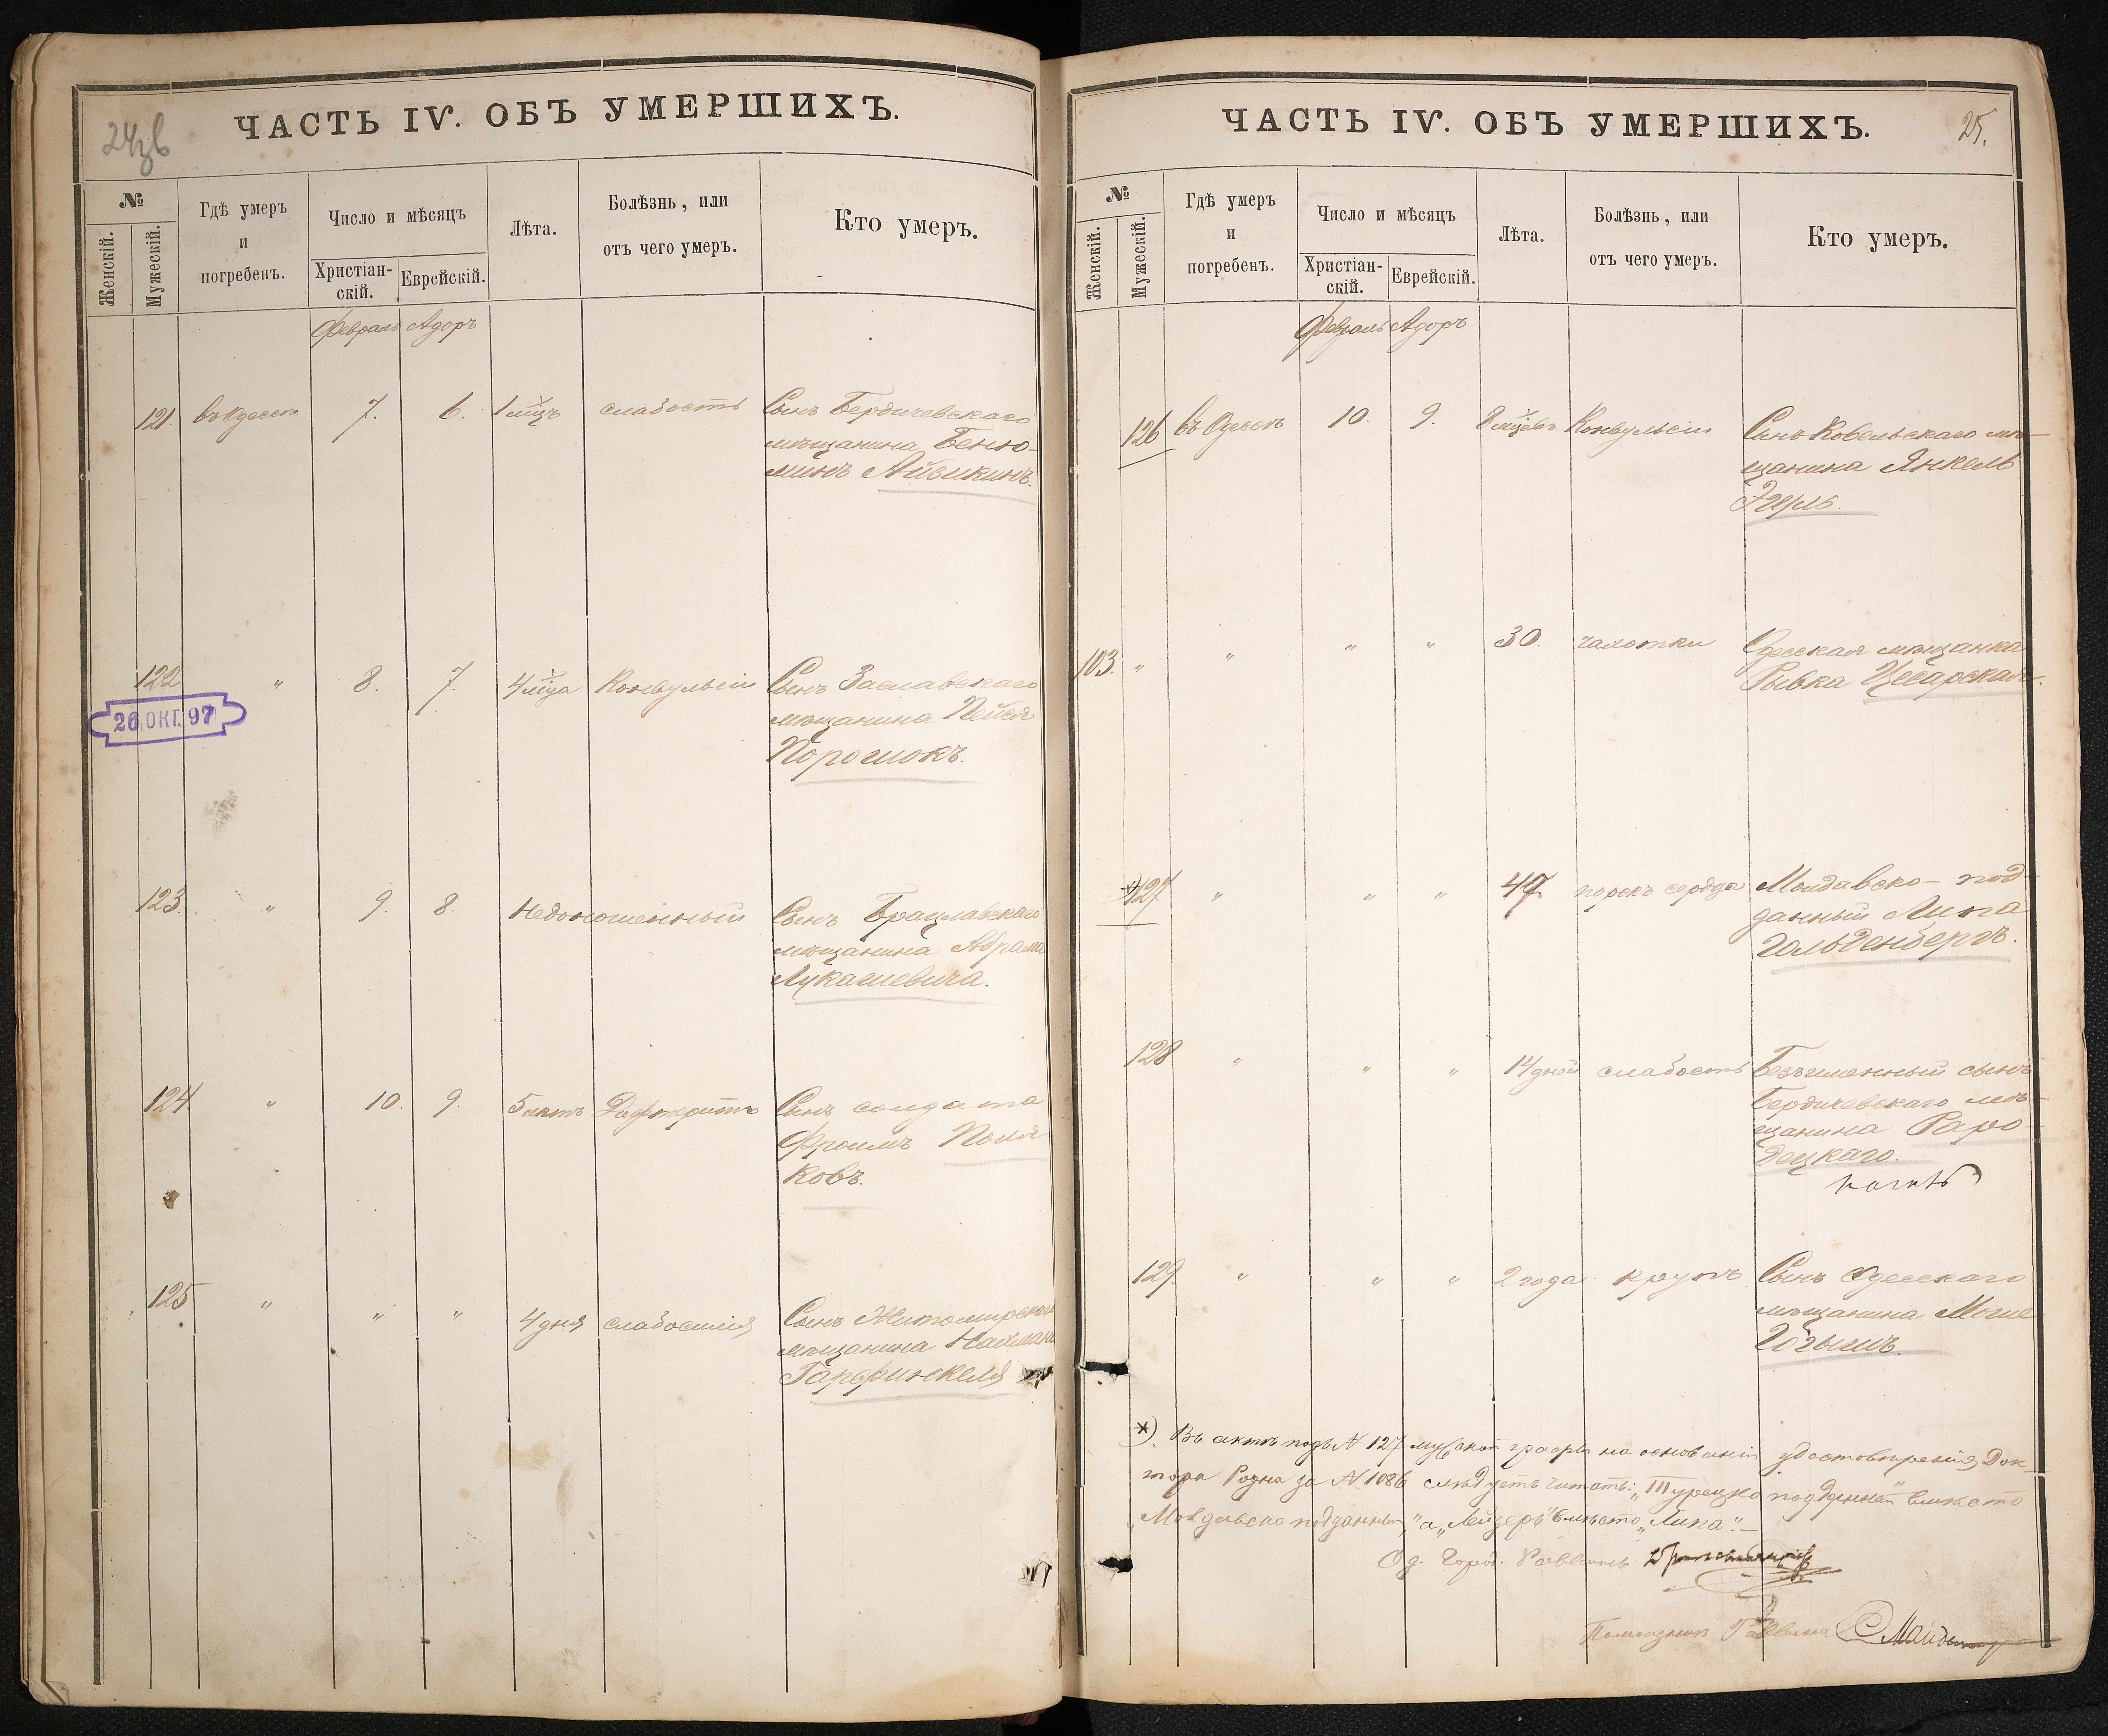 24зв
ЧАСТЬ IV. ОБЪ УМЕРШИХЪ.
№
Женскій.
Мужескій.
Гдѣ умеръ
и
погребенъ.
Число и мѣсяцъ
Христіан-
скій.
Еврейскій.
Лѣта.
Болѣзнь, или
отъ чего умеръ.
Кто умеръ.
Февраль Адоръ
121. въ Одессѣ 7. 6. 1 м-цъ слабость Сынъ Бердичевскаго
мѣщанина Беню-
минъ Айзикинъ.
122 " 8. 7. 4 м-ца Конвульсіи Сынъ Заславскаго
мѣщанина Пейся
Порошокъ.
26 ОКТ. 97
123. " 9. 8. Недоношенный Сынъ Брацлавскаго
мѣщанина Абрама
Лукашевича.
124 " 10. 9. 5 лѣтъ Дифтеритъ Сынъ солдата
Фроимъ Поля
ковъ.
125 " " " 4 дня слабосилія Сынъ Житомирскаго
мѣщанина Нахмана
Гарфинкеля
25.
ЧАСТЬ IV. ОБЪ УМЕРШИХЪ.
№
Женскій.
Мужескій.
Гдѣ умеръ
и
погребенъ.
Число и мѣсяцъ
Христіан-
скій.
Еврейскій.
Лѣта.
Болѣзнь, или
отъ чего умеръ.
Кто умеръ.
Февраль Адоръ
126 въ Одессѣ 10. 9. 8 м-цевъ Конвульсіи Сынъ Ковельскаго мѣ-
щанина Янкель
103. " " " " 30. чахотки Одесская мѣщанка
Рывка Цесарская.
*) 127 " " " 47 порокъ сердца Молдавско-под-
данный Липа
Гольденбергъ.
128 " " " 14 дней слабость Безъименный сынъ
Бердичевскаго мѣ-
щанина Расо-
децкаго.
129. " " " 2 года крупъ Сынъ Одесскаго
мѣщанина Моше
*) Въ актѣ подъ № 127 мужской графы на основаніи удостовѣренія Док-
тора за № 1086 слѣдуетъ читать: „Турецко подданный" вмѣсто
„Молдавско подданный," а „Лейзеръ" вмѣсто „Липа".—
Од. Гор. Раввинъ
Помощникъ Раввина